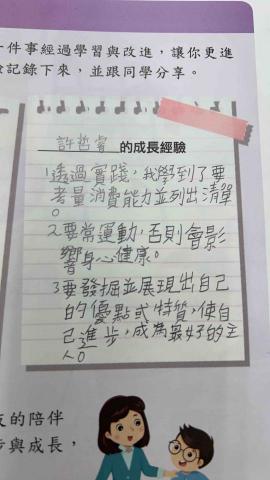 一件事經過學習與改進，讓你更進
記錄下來，並跟同學分享。
許哲睿 的成長經驗
1.透過實踐，我學到了要
考量消費能力並列出清單
。
2.要常運動，否則會影
響身心健康。
3.要發掘並展現出自己
的優點或特質，使自
己進步，成為最好的主
人。
友的陪伴
步與成長，